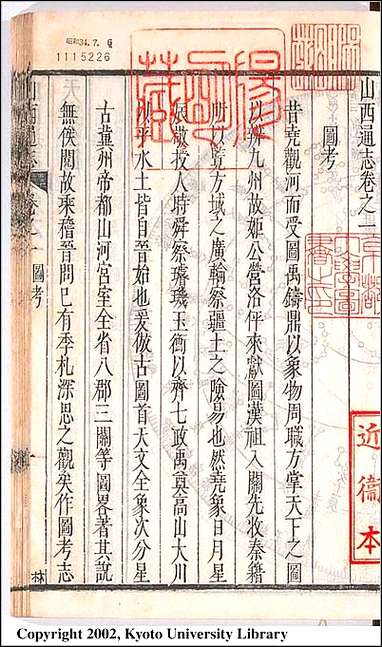 昭和34. 7. 6
1115226
山西通志卷之一
圖考
昔堯觀河而受圖禹鑄鼎以象物周職方掌天下之圖
以辨九州故姬公營洛伻來獻圖漢祖入關先收秦籍
所以覽方域之廣輪察疆土之險易也然堯象日月星
辰敬授人時舜察璿璣玉衡以齊七政禹奠高山大川
以平水土皆自晉始也爰倣古圖首天文全象次分星
古冀州帝都山河宮室全省八郡三關等圖畧著其說
無俟閱故乘稽晉問已有季札深思之觀矣作圖考志
山西通志 卷之一 圖考
林
陽明藏
近衞本
Copyright 2002, Kyoto University Library